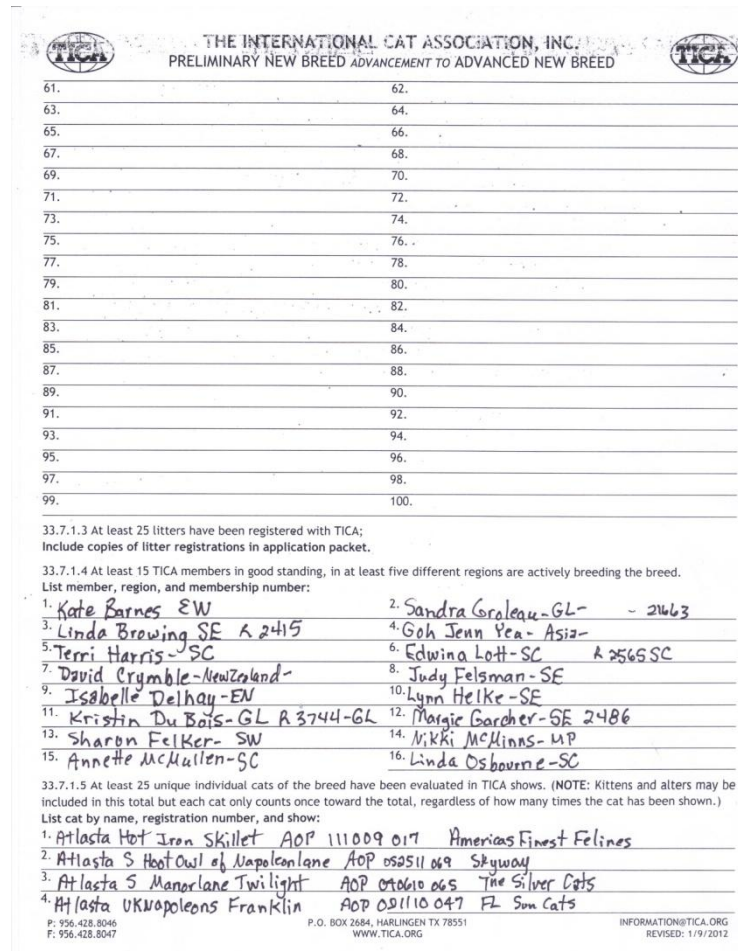 TICA THE INTERNATIONAL CAT ASSOCIATION, INC. TICA
PRELIMINARY NEW BREED ADVANCEMENT TO ADVANCED NEW BREED
61. 62.
63. 64.
65. 66.
67. 68.
69. 70.
71. 72.
73. 74.
75. 76.
77. 78.
79. 80.
81. 82.
83. 84.
85. 86.
87. 88.
89. 90.
91. 92.
93. 94.
95. 96.
97. 98.
99. 100.
33.7.1.3 At least 25 litters have been registered with TICA;
Include copies of litter registrations in application packet.
33.7.1.4 At least 15 TICA members in good standing, in at least five different regions are actively breeding the breed.
List member, region, and membership number:
1. Kate Barnes EW 2. Sandra Groleau-GL- - 21663
3. Linda Browing SE R 2415 4. Goh Jenn Yea- Asia-
5. Terri Harris-SC 6. Edwina Lott-SC R 2565 SC
7. David Crymble-NewZealand- 8. Judy Felsman-SE
9. Isabelle Delhay-EN 10. Lynn Helke-SE
11. Kristin Du Bois-GL R 3744-GL 12. Margie Garcher-SE 2486
13. Sharon Felker- SW 14. Nikki McMinns-MP
15. Annette McMullen-SC 16. Linda Osbourne-SC
33.7.1.5 At least 25 unique individual cats of the breed have been evaluated in TICA shows. (NOTE: Kittens and alters may be
included in this total but each cat only counts once toward the total, regardless of how many times the cat has been shown.)
List cat by name, registration number, and show:
1. Atlasta Hot Iron Skillet AOP 111009 017 Americas Finest Felines
2. Atlasta S Hoot Owl of Napoleonlane AOP 052511 069 Skyway
3. Atlasta S Manorlane Twilight AOP 070610 065 The Silver Cats
4. Atlasta UKNapoleons Franklin AOP 021110 047 FL Sun Cats
P: 956.428.8046 P.O. BOX 2684, HARLINGEN TX 78551 INFORMATION@TICA.ORG
F: 956.428.8047 WWW.TICA.ORG REVISED: 1/9/2012